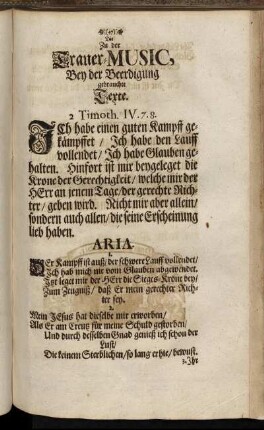 Die
Zu der
Trauer-MUSIC,
Bey der Beerdigung
gebrauchte
Texte.
2 Timoth. IV. 7. 8.
ICh habe einen guten Kampff ge-
kämpffet / Ich habe den Lauff
vollendet / Ich habe Glauben ge-
halten. Hinfort ist mir beygeleget die
Krone der Gerechtigkeit / welche mir der
HErr an jenem Tage / der gerechte Rich-
ter / geben wird. Nicht mir aber allein /
sondern auch allen / die seine Erscheinung
lieb haben.
ARIA.
1.
DEr Kampff ist auß: der schwere Lauff vollendet /
Ich hab mich nie vom Glauben abgewendet.
Itzt leget mir der HErr die Sieges-Krone bey /
Zum Zeugniß / daß Er mein gerechter Rich-
ter sey.
2.
Mein JEsus hat dieselbe mir erworben /
Als Er am Creutz für meine Schuld gestorben /
Und durch desselben Gnad genieß ich schon der
Lust /
Die keinem Sterblichen / so lang er hie / bewust.
3. Ihr